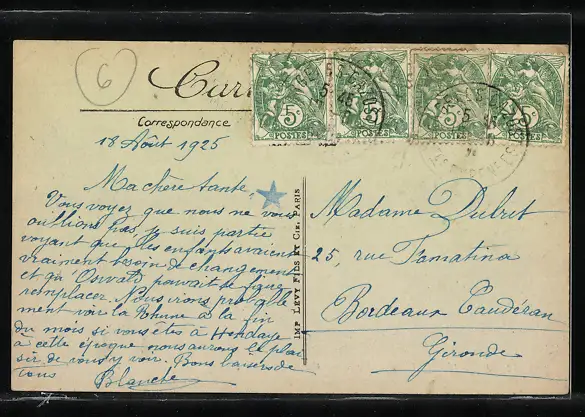 6
Car
Correspondance
5c
POSTES
POSTES
POSTES
5c
POSTES
18 Août 1925
Ma chère tante
Vous voyez que nous ne vous
oublions pas, je suis partie
voyant que les enfants avaient
vraiment besoin de changement
et qu'Oswald pouvait se
remplacer. Nous irons probable
ment voir la Rhune à la fin
du mois si vous êtes à Hendaye
à cette époque nous aurons le plai
sir de vous y voir. Bons baisers de
tous
Blanche
IMP LEVY FILS ET CIE. PARIS
Madame Dubret
25, rue Tamatina
Bordeaux Caudéran
Gironde